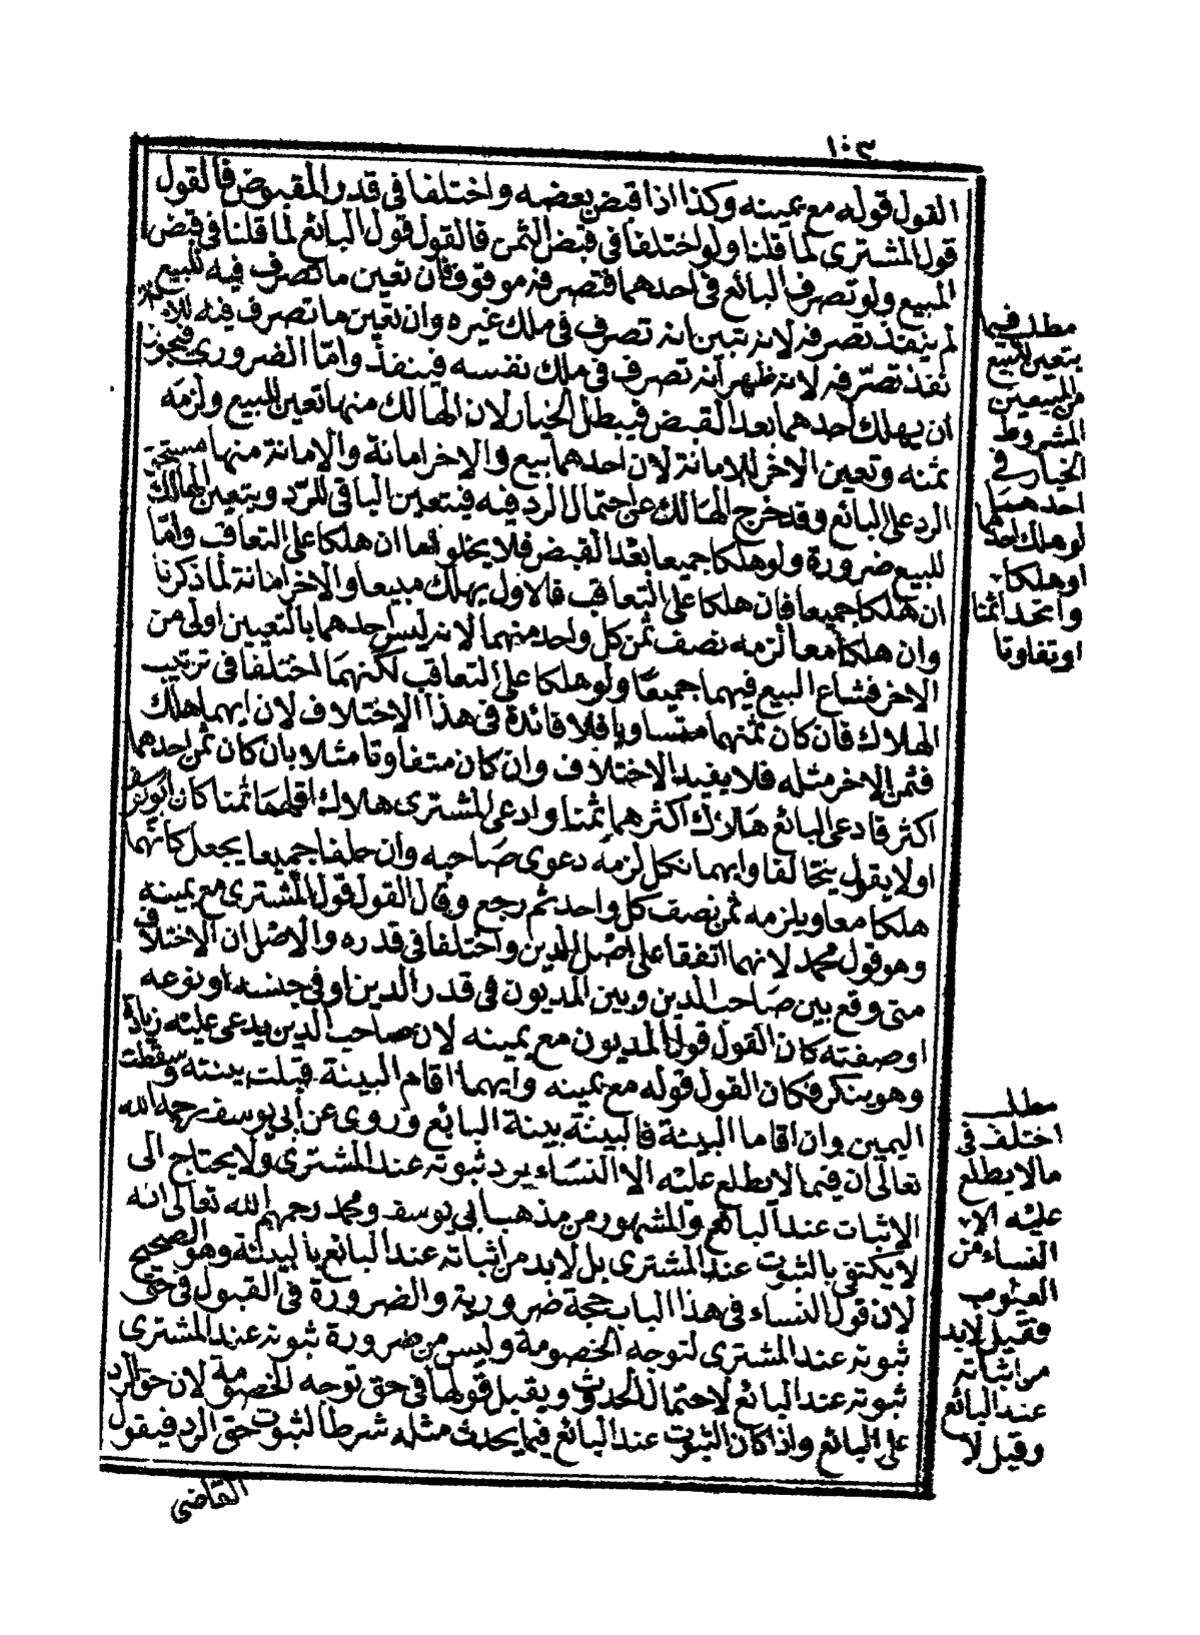 ١٠٣
القول قوله مع يمينه وكذا اذا قبض بعضه واختلفا فى قدر المقبوض فالقول
قول المشترى لما قلنا ولو اختلفا فى قبض الثمن فالقول قول البائع لما قلنا فى قبض
المبيع ولو تصرف البائع فى احدهما فتصرفه موقوف فان تعين ما تصرف فيه للبيع
لم ينفذ تصرفه لانه تبين انه تصرف فى ملك غيره وان تعين ما تصرف فيه للامانة
نفذ تصرفه لانه ظهر انه تصرف فى ملك نفسه فينفذ وامّا الضرورى فنحو
ان يهلك احدهما بعد القبض فيبطل الخيار لان الهالك منهما تعين للبيع ولزمه
ثمنه وتعين الاخر للامانة لان احدهما بيع والاخر امانة والامانة منهما مستحق
الرد على البائع وقد خرج الهالك عن احتمال الرد فيه فيتعين الباقى للرد ويتعين الهالك
للبيع ضرورة ولو هلكا جميعا بعد القبض فلا يخلو اما ان هلكا على التعاقب وامّا
ان هلكا جميعا فان هلكا على التعاقب فالاول يهلك مبيعا والاخر امانة لما ذكرنا
وان هلكا معا لزمه نصف ثمن كل واحد منهما لانه ليس احدهما بالتعيين اولى من
الاخر فشاع البيع فيهما جميعًا ولو هلكا على التعاقب لكنهما اختلفا فى ترتيب
الهلاك فان كان ثمنهما متساويا فلا فائدة فى هذا الاختلاف لان ايهما هلك
فثمن الاخر مثله فلا يفيد الاختلاف وان كان متفاوتا مثلا بان كان ثمن احدهما
اكثر فادعى البائع هلاك اكثرهما ثمنا وادعى المشترى هلاك اقلهما ثمنا كان ابو يوسف
اولا يقول يتحالفا وايهما نكل لزمه دعوى صاحبه وان حلفا جميعا يجعل كانهما
هلكا معا ويلزمه ثمن نصف كل واحد ثم رجع وقال القول قول المشترى مع يمينه
وهو قول محمد لانهما اتفقا على اصل الدين واختلفا فى قدره والاصل ان الاختلاف
متى وقع بين صاحب الدين وبين المديون فى قدر الدين او فى جنسه او نوعه
او صفته كان القول قول المديون مع يمينه لان صاحب الدين يدعى عليه زيادة
وهو ينكر فكان القول قوله مع يمينه وايهما اقام البينة قبلت بينته وسقطت
اليمين وان اقاما البينة فالبينة بينة البائع وروى عن أبى يوسف رحمه الله
تعالى ان فيما لا يطلع عليه الا النساء يرد ثبوته عند المشترى ولا يحتاج الى
الاثبات عند البائع والمشهور من مذهب ابى يوسف ومحمد رحمهم الله تعالى انه
لا يكتفى بالثبوت عند المشترى بل لا بد من اثباته عند البائع بالبينة وهو الصحيح
لان قول النساء فى هذا الباب حجة ضرورية والضرورة فى القبول فى حق
ثبوته عند المشترى لتوجه الخصومة وليس من ضرورة ثبوته عند المشترى
ثبوته عند البائع لاحتمال الحدوث ويقبل قولها فى حق توجه الخصومة لان حق الرد
على البائع واذا كان الثبوت عند البائع فيما يحدث مثله شرطا لثبوت حق الرد فيقول
القاضى
مطلب فيما
يتعين للبيع
من المبيعين
المشروط
الخيار فى
احدهما
لو هلك احدهما
او هلكا
واتحدا ثمنا
او تفاوتا
مطلب
اختلف فى
ما لا يطلع
عليه الا
النساء من
العيوب
فقيل لا بد
من اثباته
عند البائع
وقيل لا